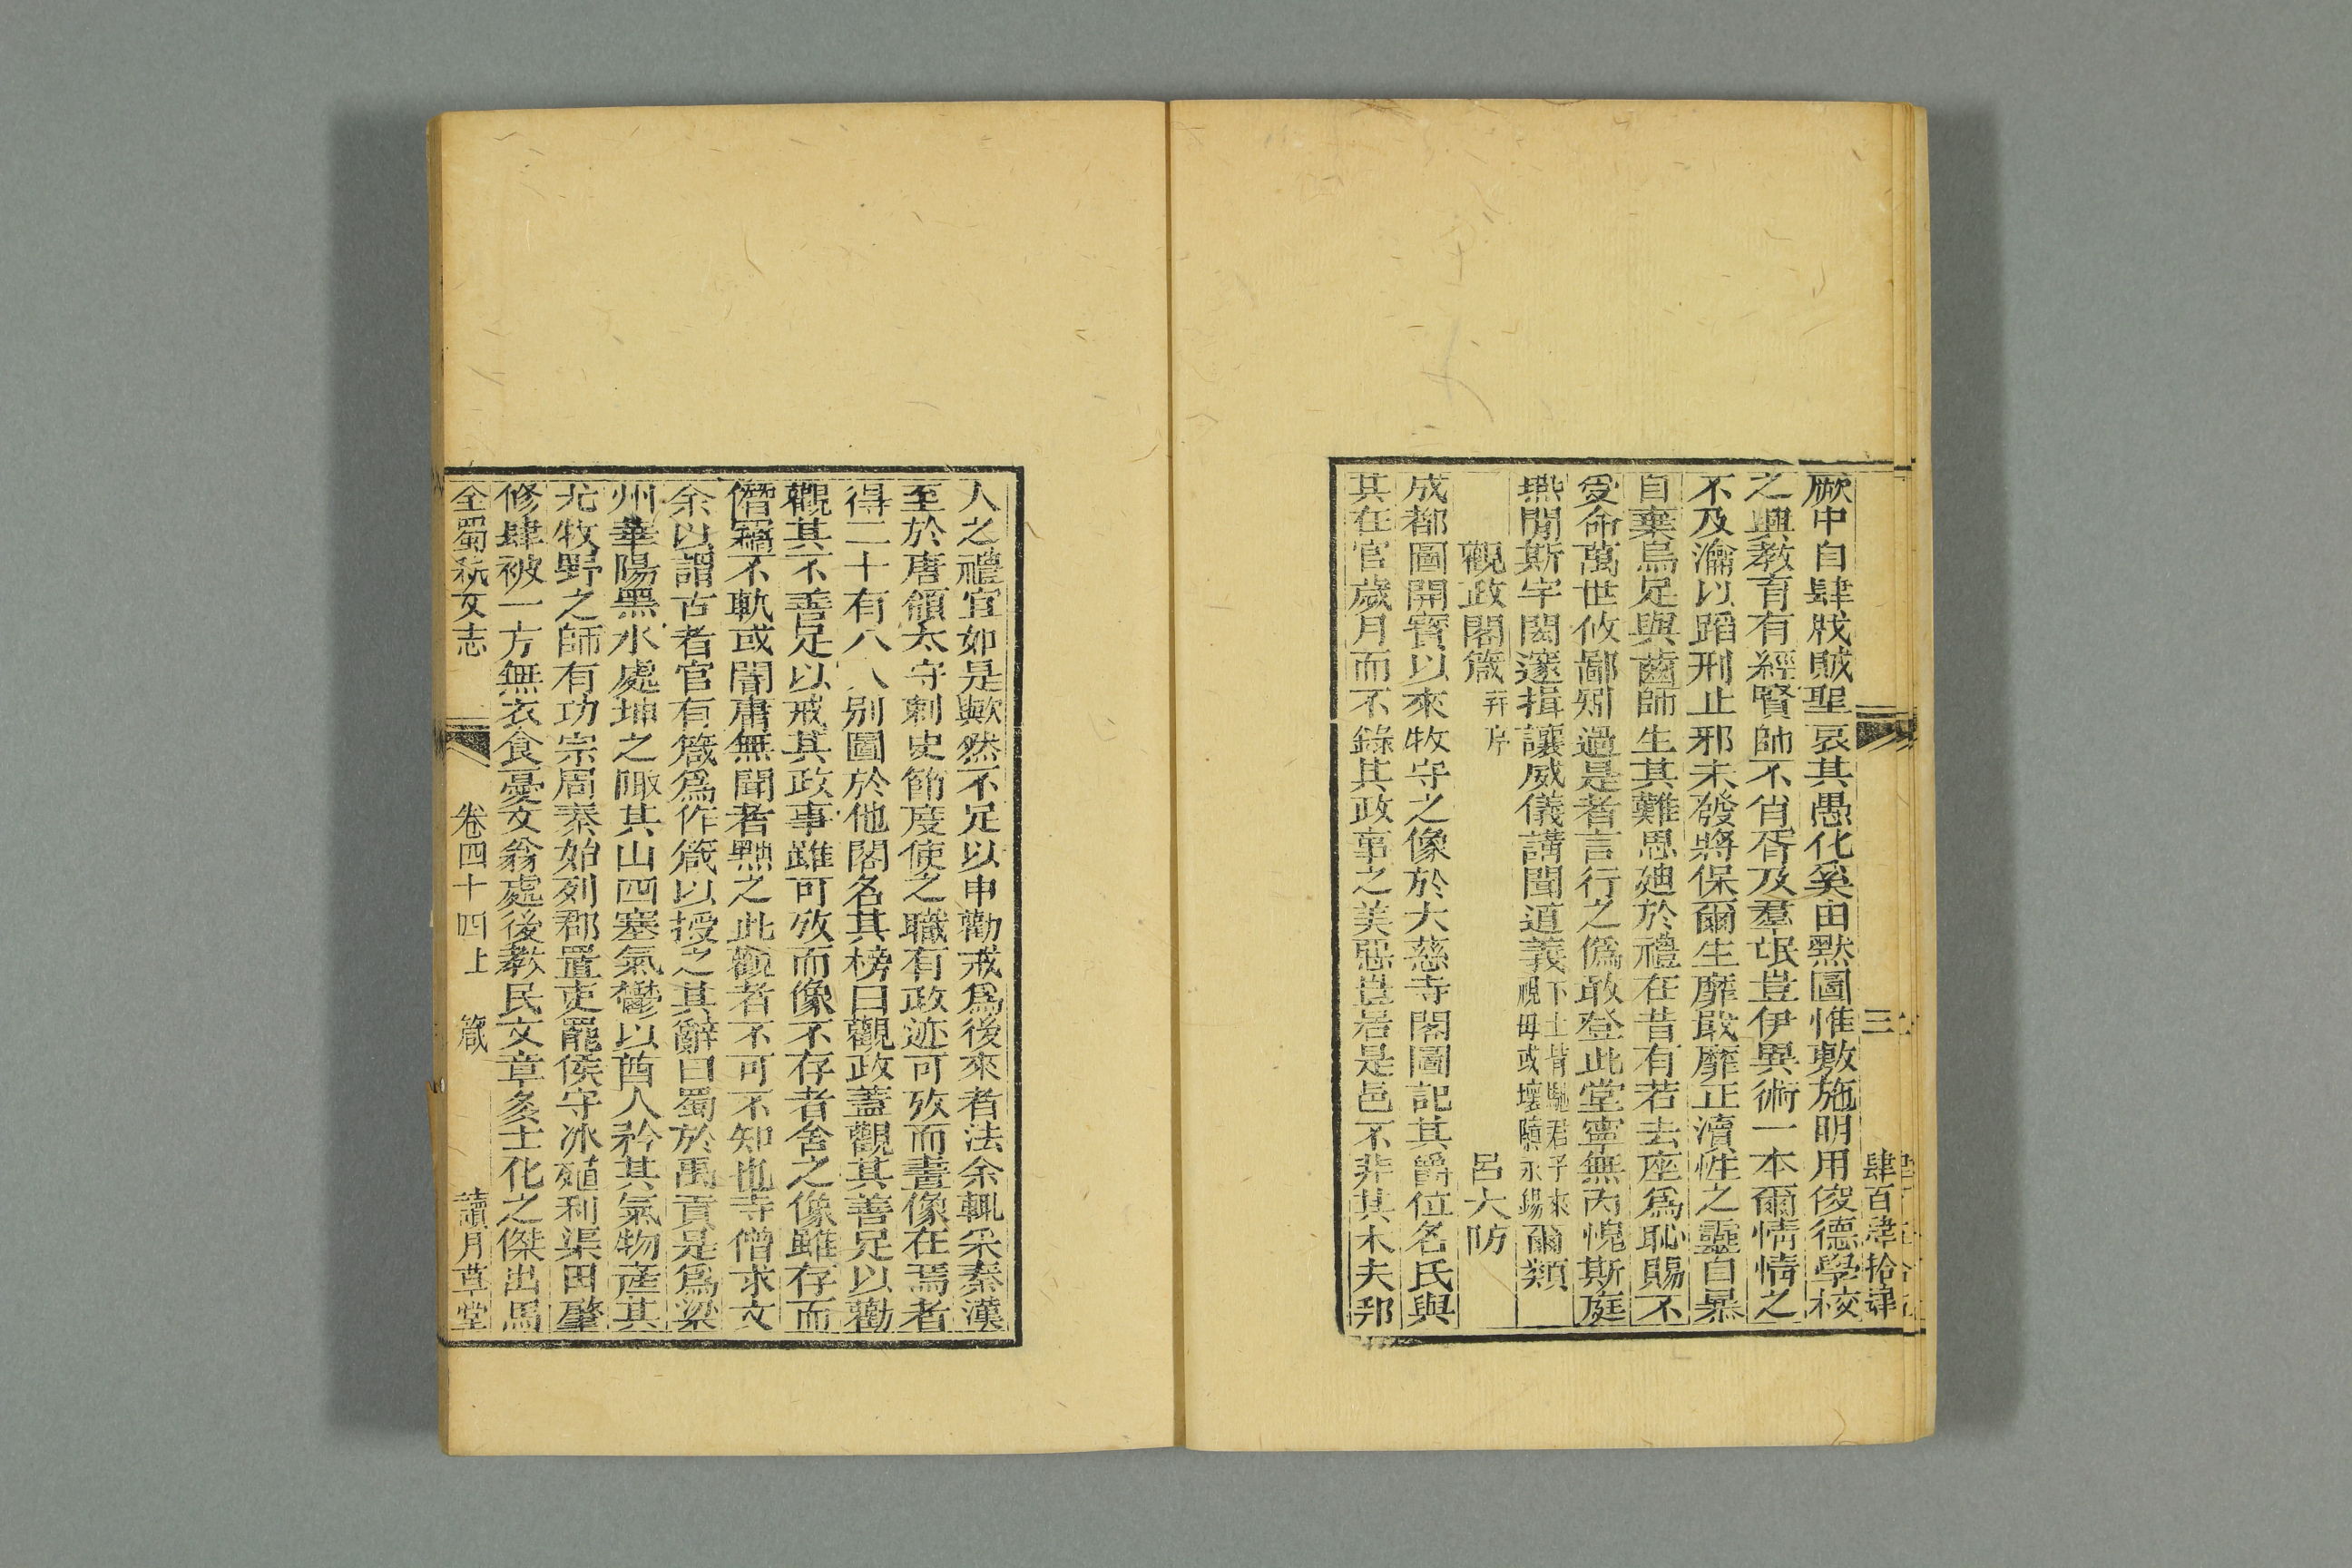 三
肆百肆拾肆
厥中自肆戕賊聖哀其愚化奚由黙圖惟敷施明用俊德學校
之興教育有經賢師不肖胥及羣氓豈伊異術一本爾情情之
不及瀹以蹈刑止邪未發將保爾生靡戢靡正瀆性之靈自暴
自棄烏足與齒師生其難思廸於禮在昔有若去座爲恥賜不
受命萬世攸鄙矧過是者言行之僞敢登此堂寧無内愧斯庭
燕閒斯宇閎邃揖讓威儀講聞道義下土背馳君子來視毋或壞隳永錫爾類
觀政閣箴并序 呂大防
成都圖開寶以來牧守之像於大慈寺閣圖記其爵位名氏與
其在官歲月而不錄其政事之美惡豈居是邑不非其大夫邪
人之禮宜如是歟然不足以申勸戒爲後來者法余輒采秦漢
至於唐領太守刺史節度使之職有政迹可攷而畫像在焉者
得二十有八人别圖於他閣名其榜曰觀政蓋觀其善足以勸
觀其不善足以戒其政事雖可攷而像不存者舍之像雖存而
僭竊不軌或闇庸無聞者黜之此觀者不可不知也寺僧求文
余以謂古者官有箴爲作箴以授之其辭曰蜀於禹貢是爲梁
州華陽黑水處坤之陬其山四塞氣鬱以酋人矜其氣物産其
尤牧野之師有功宗周秦始列郡置吏罷侯守冰殖利渠田肇
修肆被一方無衣食憂文翁處後教民文章爰士化之傑出馬
全蜀秇文志 卷四十四上 箴 讀月草堂